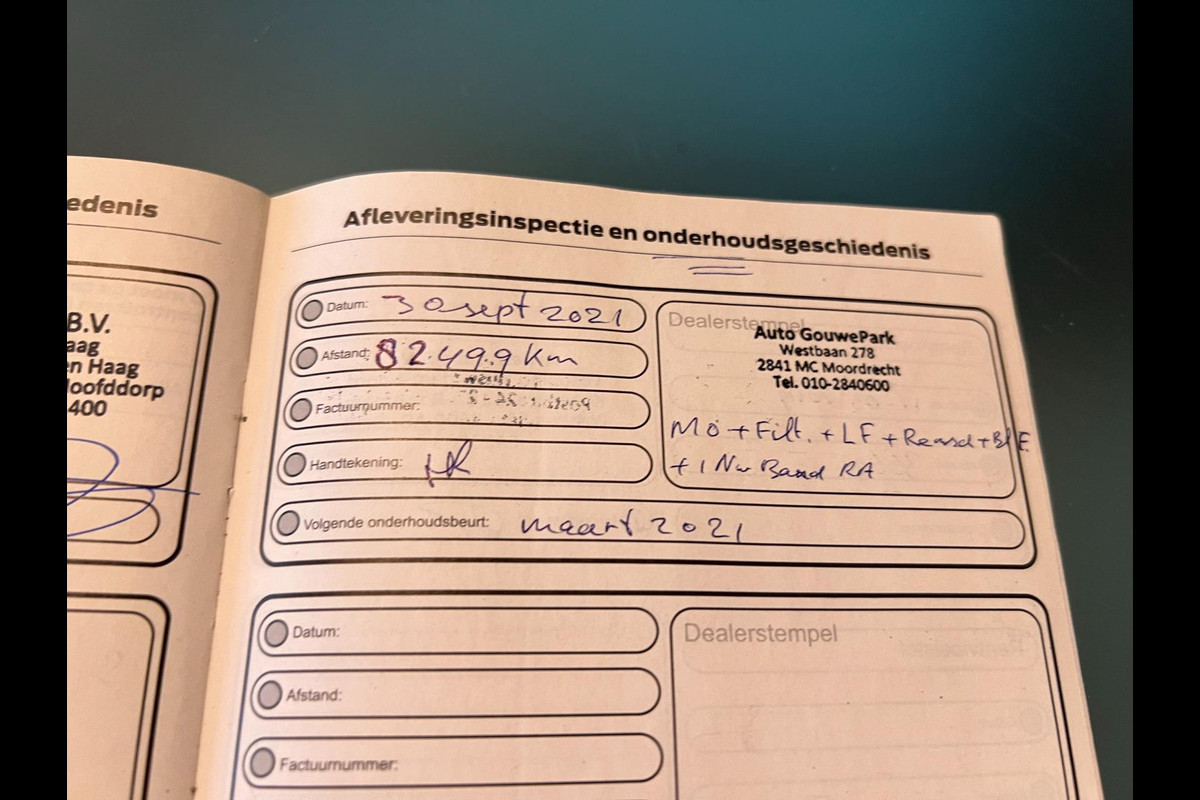 edenis
B.V.
aag
n Haag
oofddorp
400
Afleveringsinspectie en onderhoudsgeschiedenis
Datum: 30 sept 2021
Afstand: 82.499 km
Factuurnummer:
Handtekening:
Volgende onderhoudsbeurt: maart 2021
Dealerstempel
Auto GouwePark
Westbaan 278
2841 MC Moordrecht
Tel. 010-2840600
MO + Filt. + LF +
+ 1 Nw Band RA
Datum:
Afstand:
Factuurnummer:
Dealerstempel